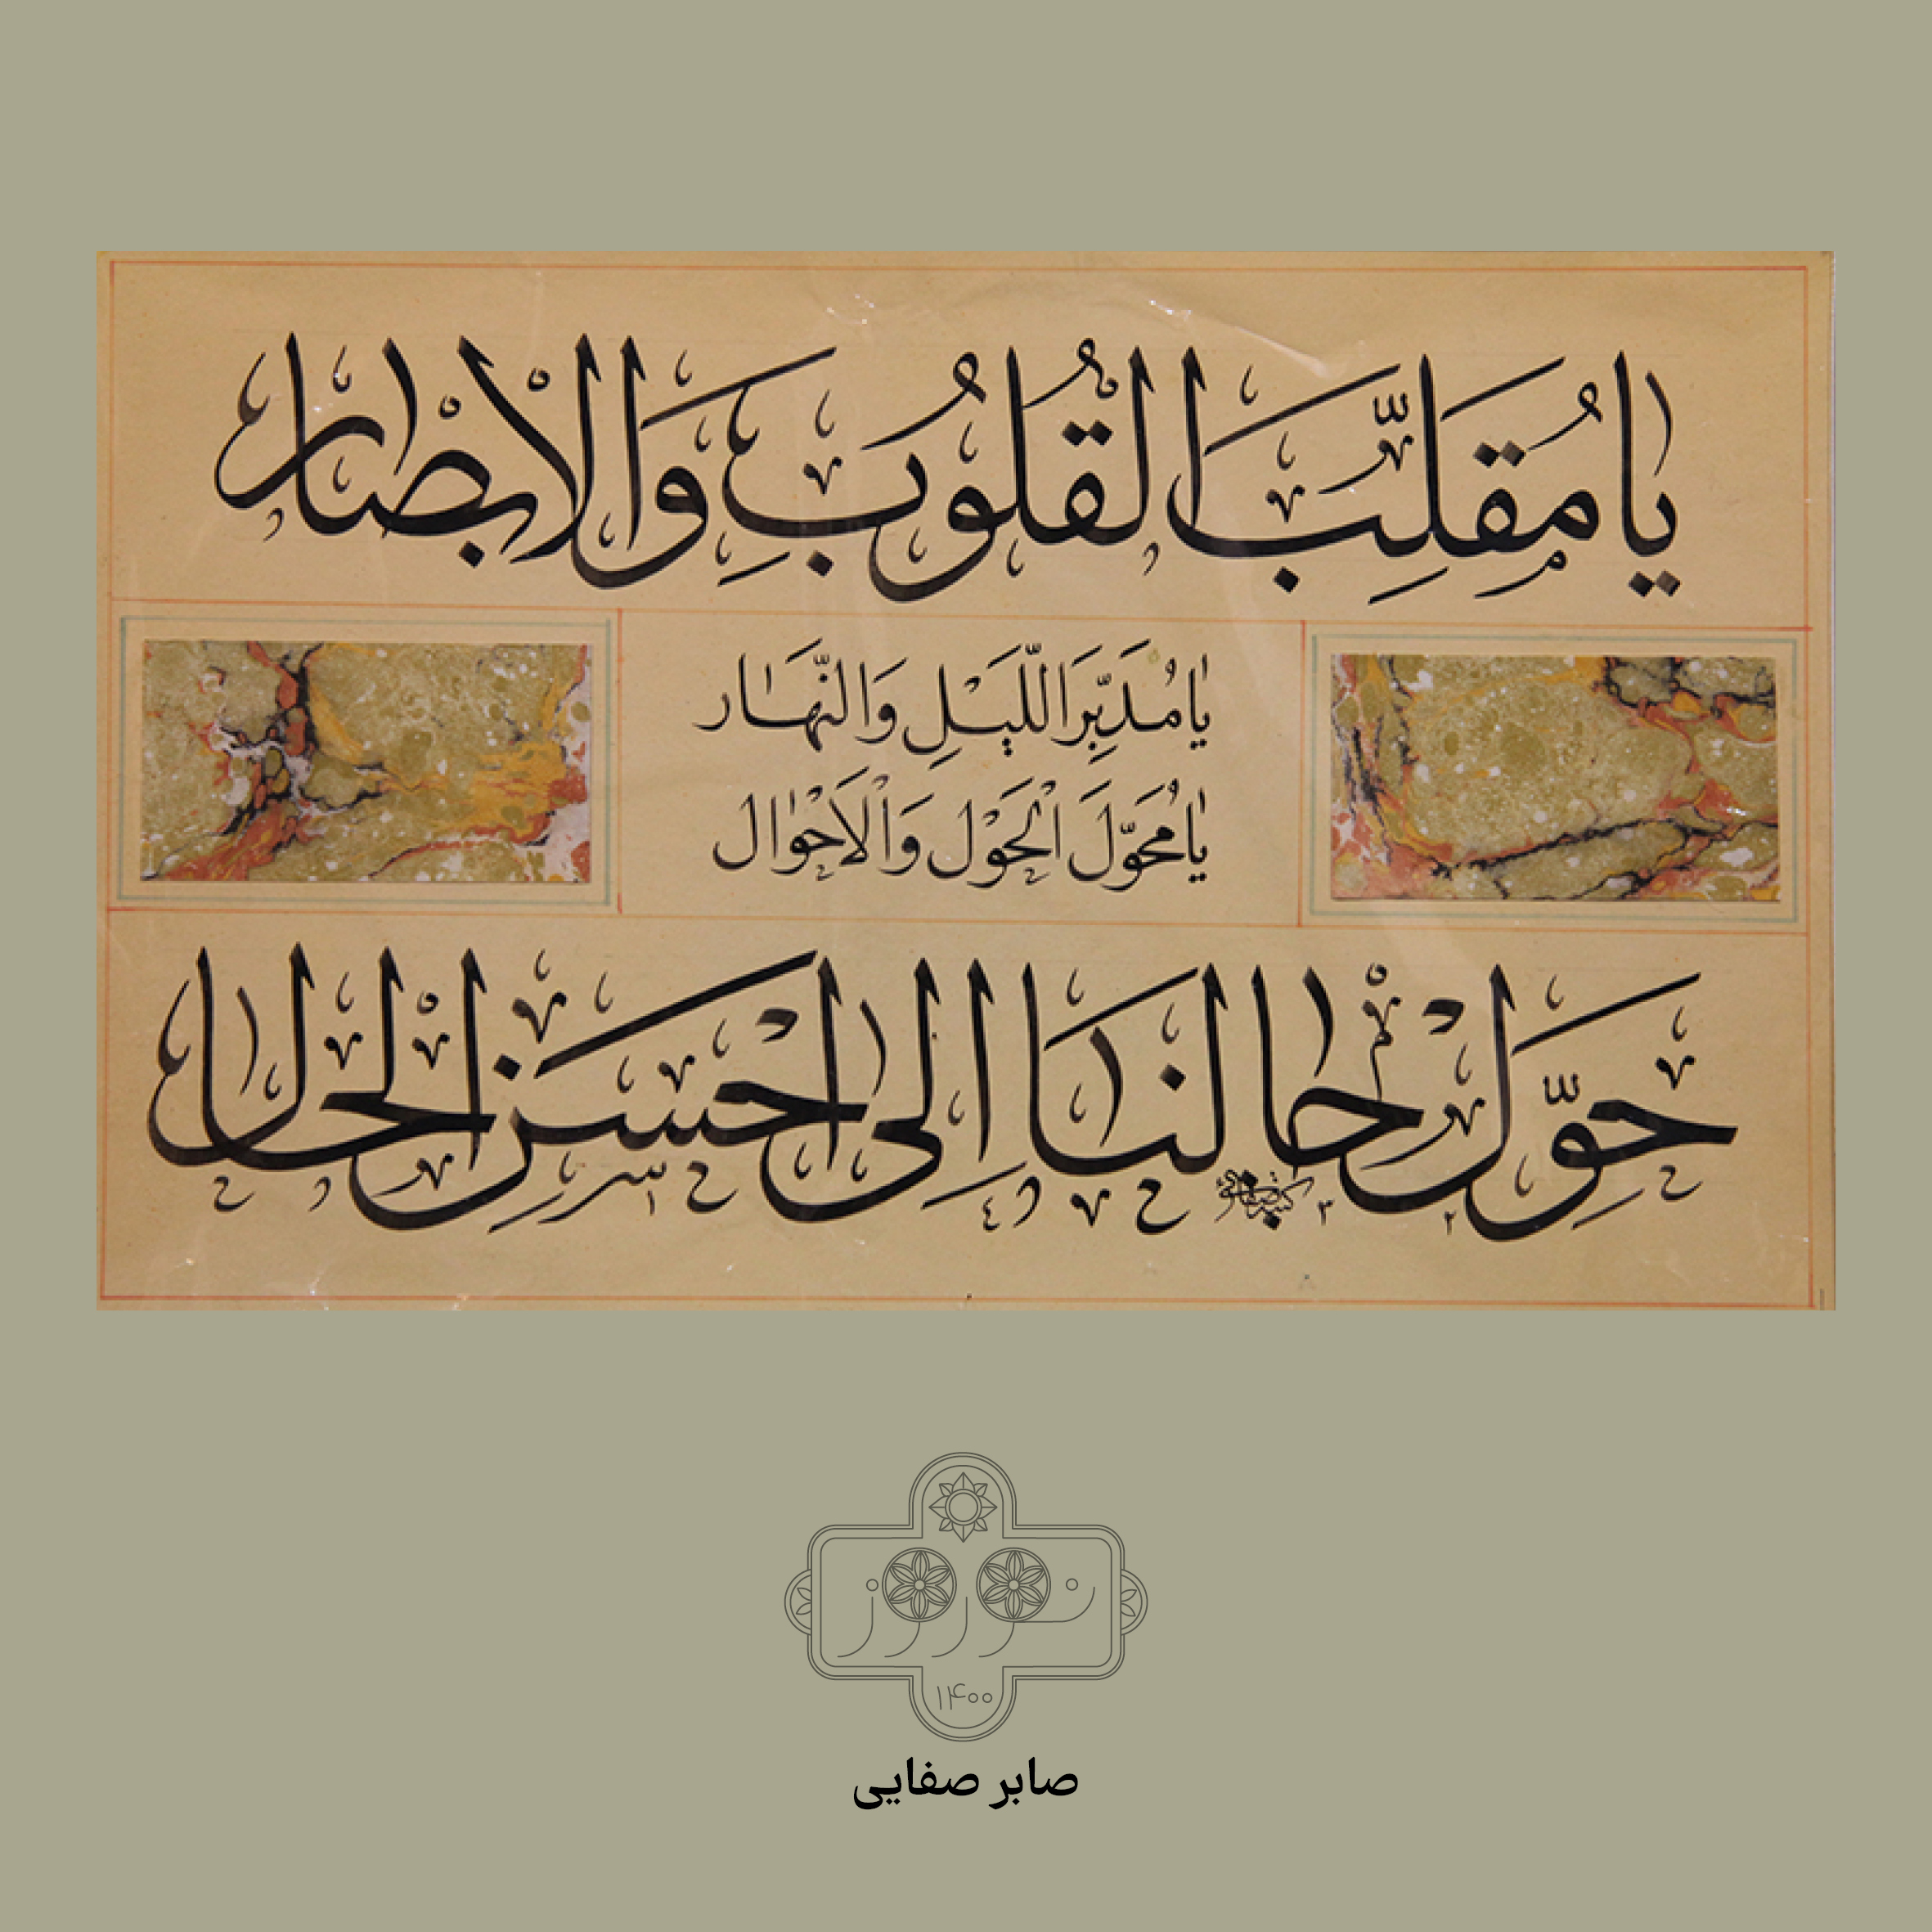 يا مُقَلِّبَ القُلُوبِ وَالْأَبْصار
يا مُدَبِّرَ اللَّيْلِ وَالنَّهار
يا مُحَوِّلَ الْحَوْلِ وَالْأَحْوال
حَوِّلْ حالَنا اِلى اَحْسَنِ الْحال
نوروز
۱۴۰۰
صابر صفایی